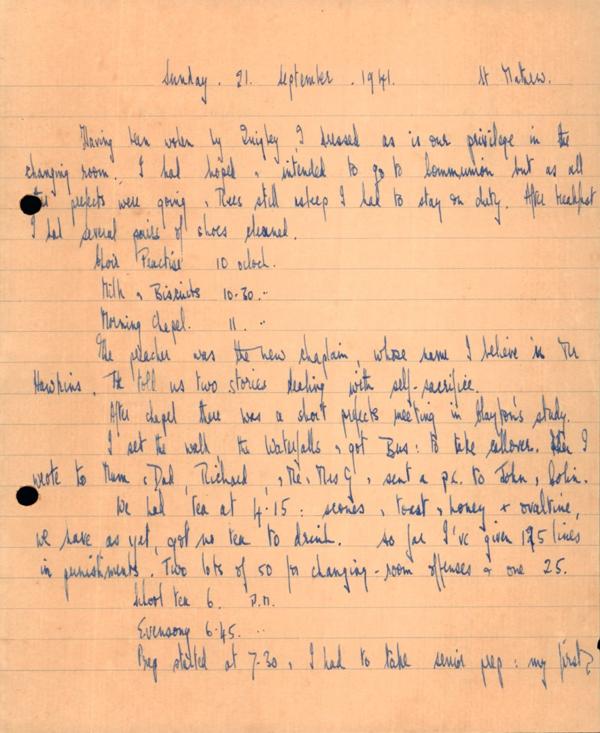 Sunday . 21. September . 1941. St Mathew.
Having been woken by Quigley I dressed as is our privilege in the
changing room. I had hoped & intended to go to Communion but as all
the prefects were going, & Trees still asleep I had to stay on duty. After breakfast
I had several pairs of shoes cleaned.
Choir Practise 10 oclock.
Milk & Biscuits 10.30. "
Morning Chapel. 11. "
The preacher was the new chaplain, whose name I believe is Mr
Hawkins. He told us two stories dealing with self-sacrifice.
After chapel there was a short prefects meeting in study.
I set the walk the Waterfalls, & got Bus: to take callover. I
wrote to Mum & Dad, Richard, & Mr & Mrs G, & sent a p.c. to John & Colin.
We had tea at 4.15: scones, toast & honey + ovaltine,
we have as yet, got no tea to drink. So far I've given 125 lines
in punishments. Two lots of 50 for changing-room offenses & one 25.
School tea 6. P.M.
Evensong 6.45. "
Prep started at 7.30, & I had to take senior prep: my first?